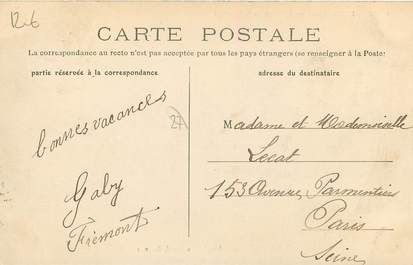 12€
CARTE POSTALE
La correspondance au recto n'est pas acceptée par tous les pays étrangers (se renseigner à la Poste)
partie réservée à la correspondance
adresse du destinataire
bonnes vacances
27
Gaby
Frémont
Madame et Mademoiselle
Lecat
153 Avenue Parmentier
Paris
Seine